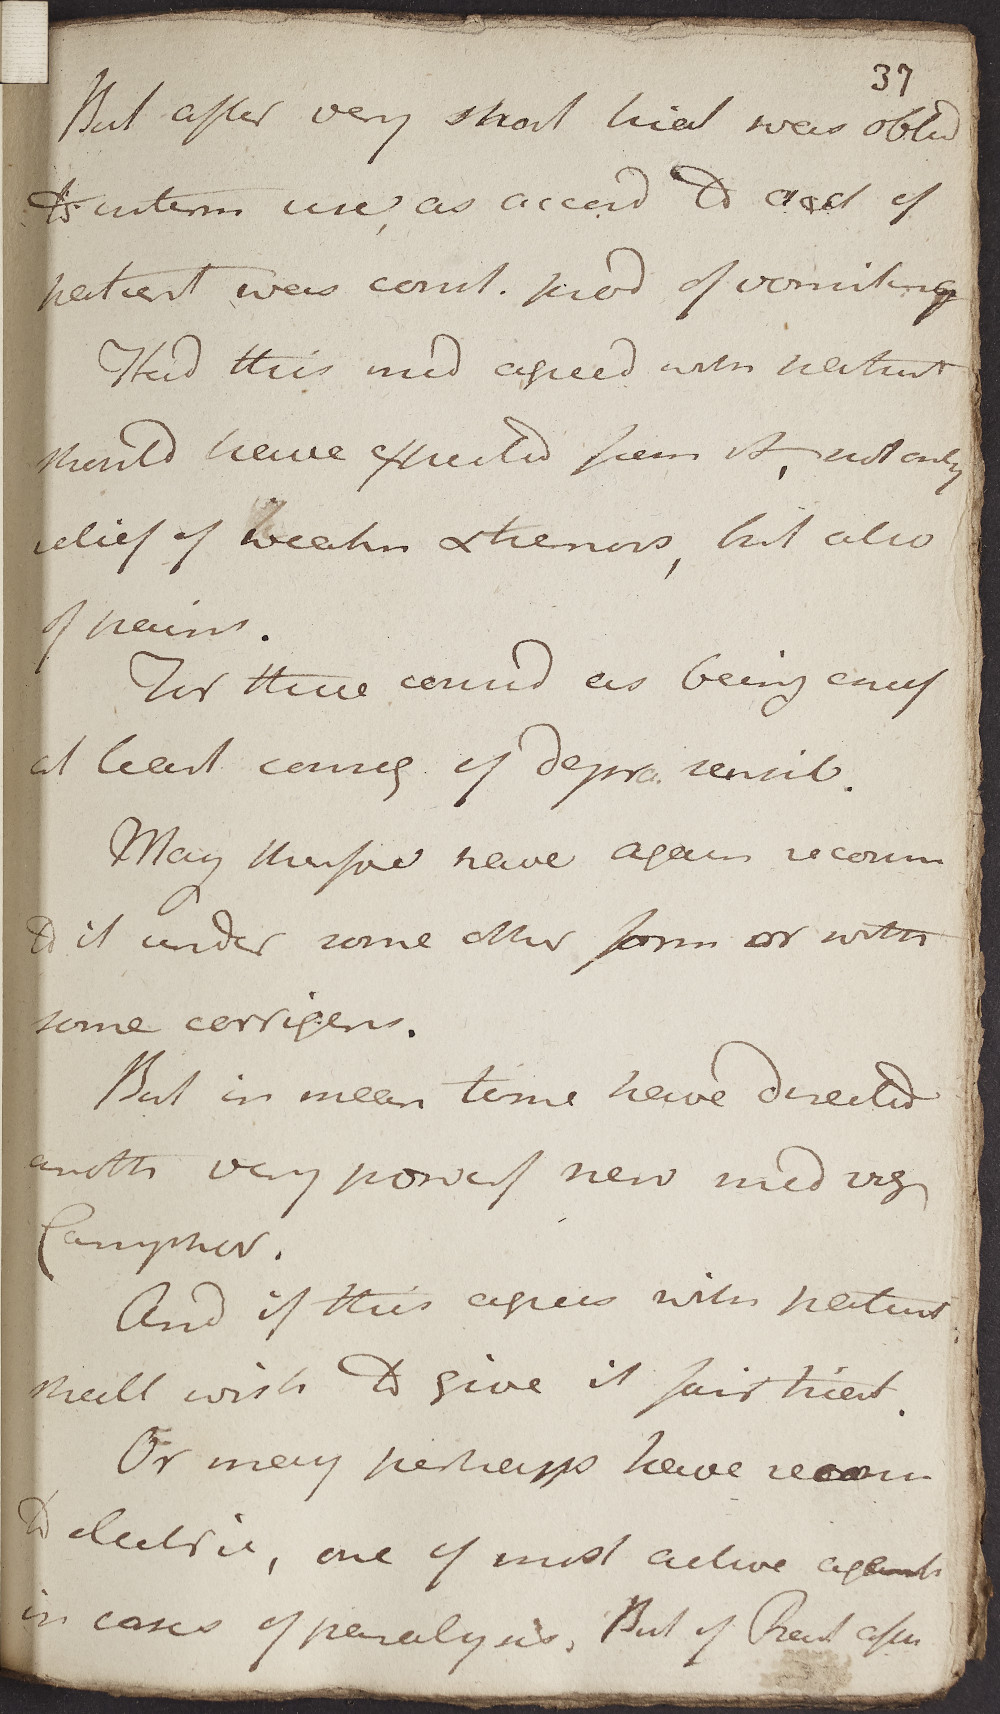 37
But after very short trial was obld
to interm use, as accord to acct of
patient was const. prod of vomiting
Had this med agreed with patient
should have expected from it, not only
relief of weakn & tremors, but also
of pains.
For these consid as being
at least conseq of deprav. sensib.
May therefore have again recourse
to it under some other form or with
some corrigens.
But in mean time have directed
anothr very powerf new med viz
Camphor.
And if this agrees with patient
shall wish to give it fair trial.
Or may perhaps have recours
to electric, one of most active agents
in cases of paralysis. But of after